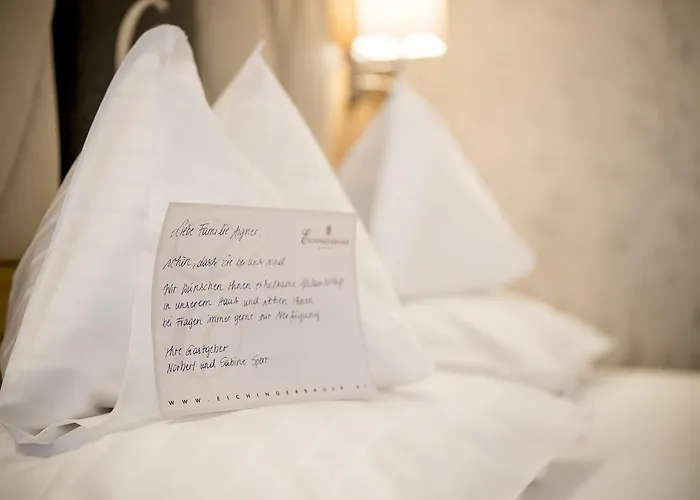 Liebe Familie Aigner,
EICHINGERBAUER
schön, dass Sie bei uns sind
Wir wünschen Ihnen erholsame
in unserem Haus und stehen Ihnen
bei Fragen immer gerne zur Verfügung
Ihre Gastgeber
Norbert und Sabine
WWW.EICHINGERBAUER.AT